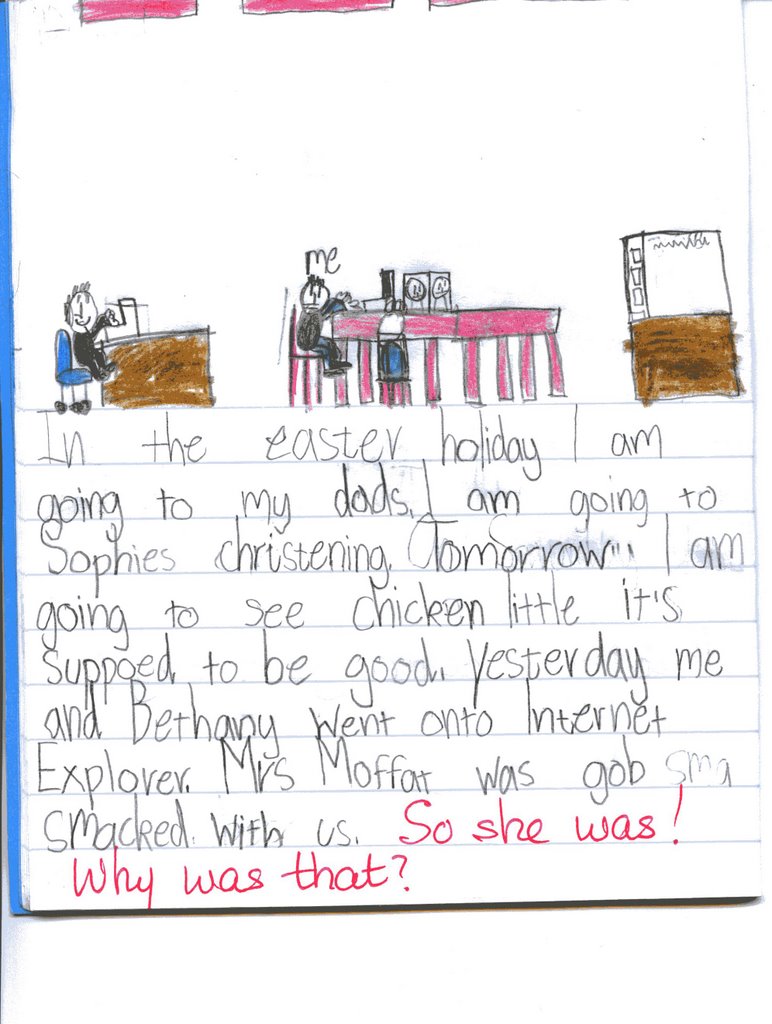 me
In the easter holiday I am
going to my dads. I am going to
Sophies christening. Tomorrow... I am
going to see chicken little it's
suppoed to be good. Yesterday me
and Bethany went onto Internet
Explorer. Mrs Moffat was gob sma
smacked with us. So she was!
Why was that?